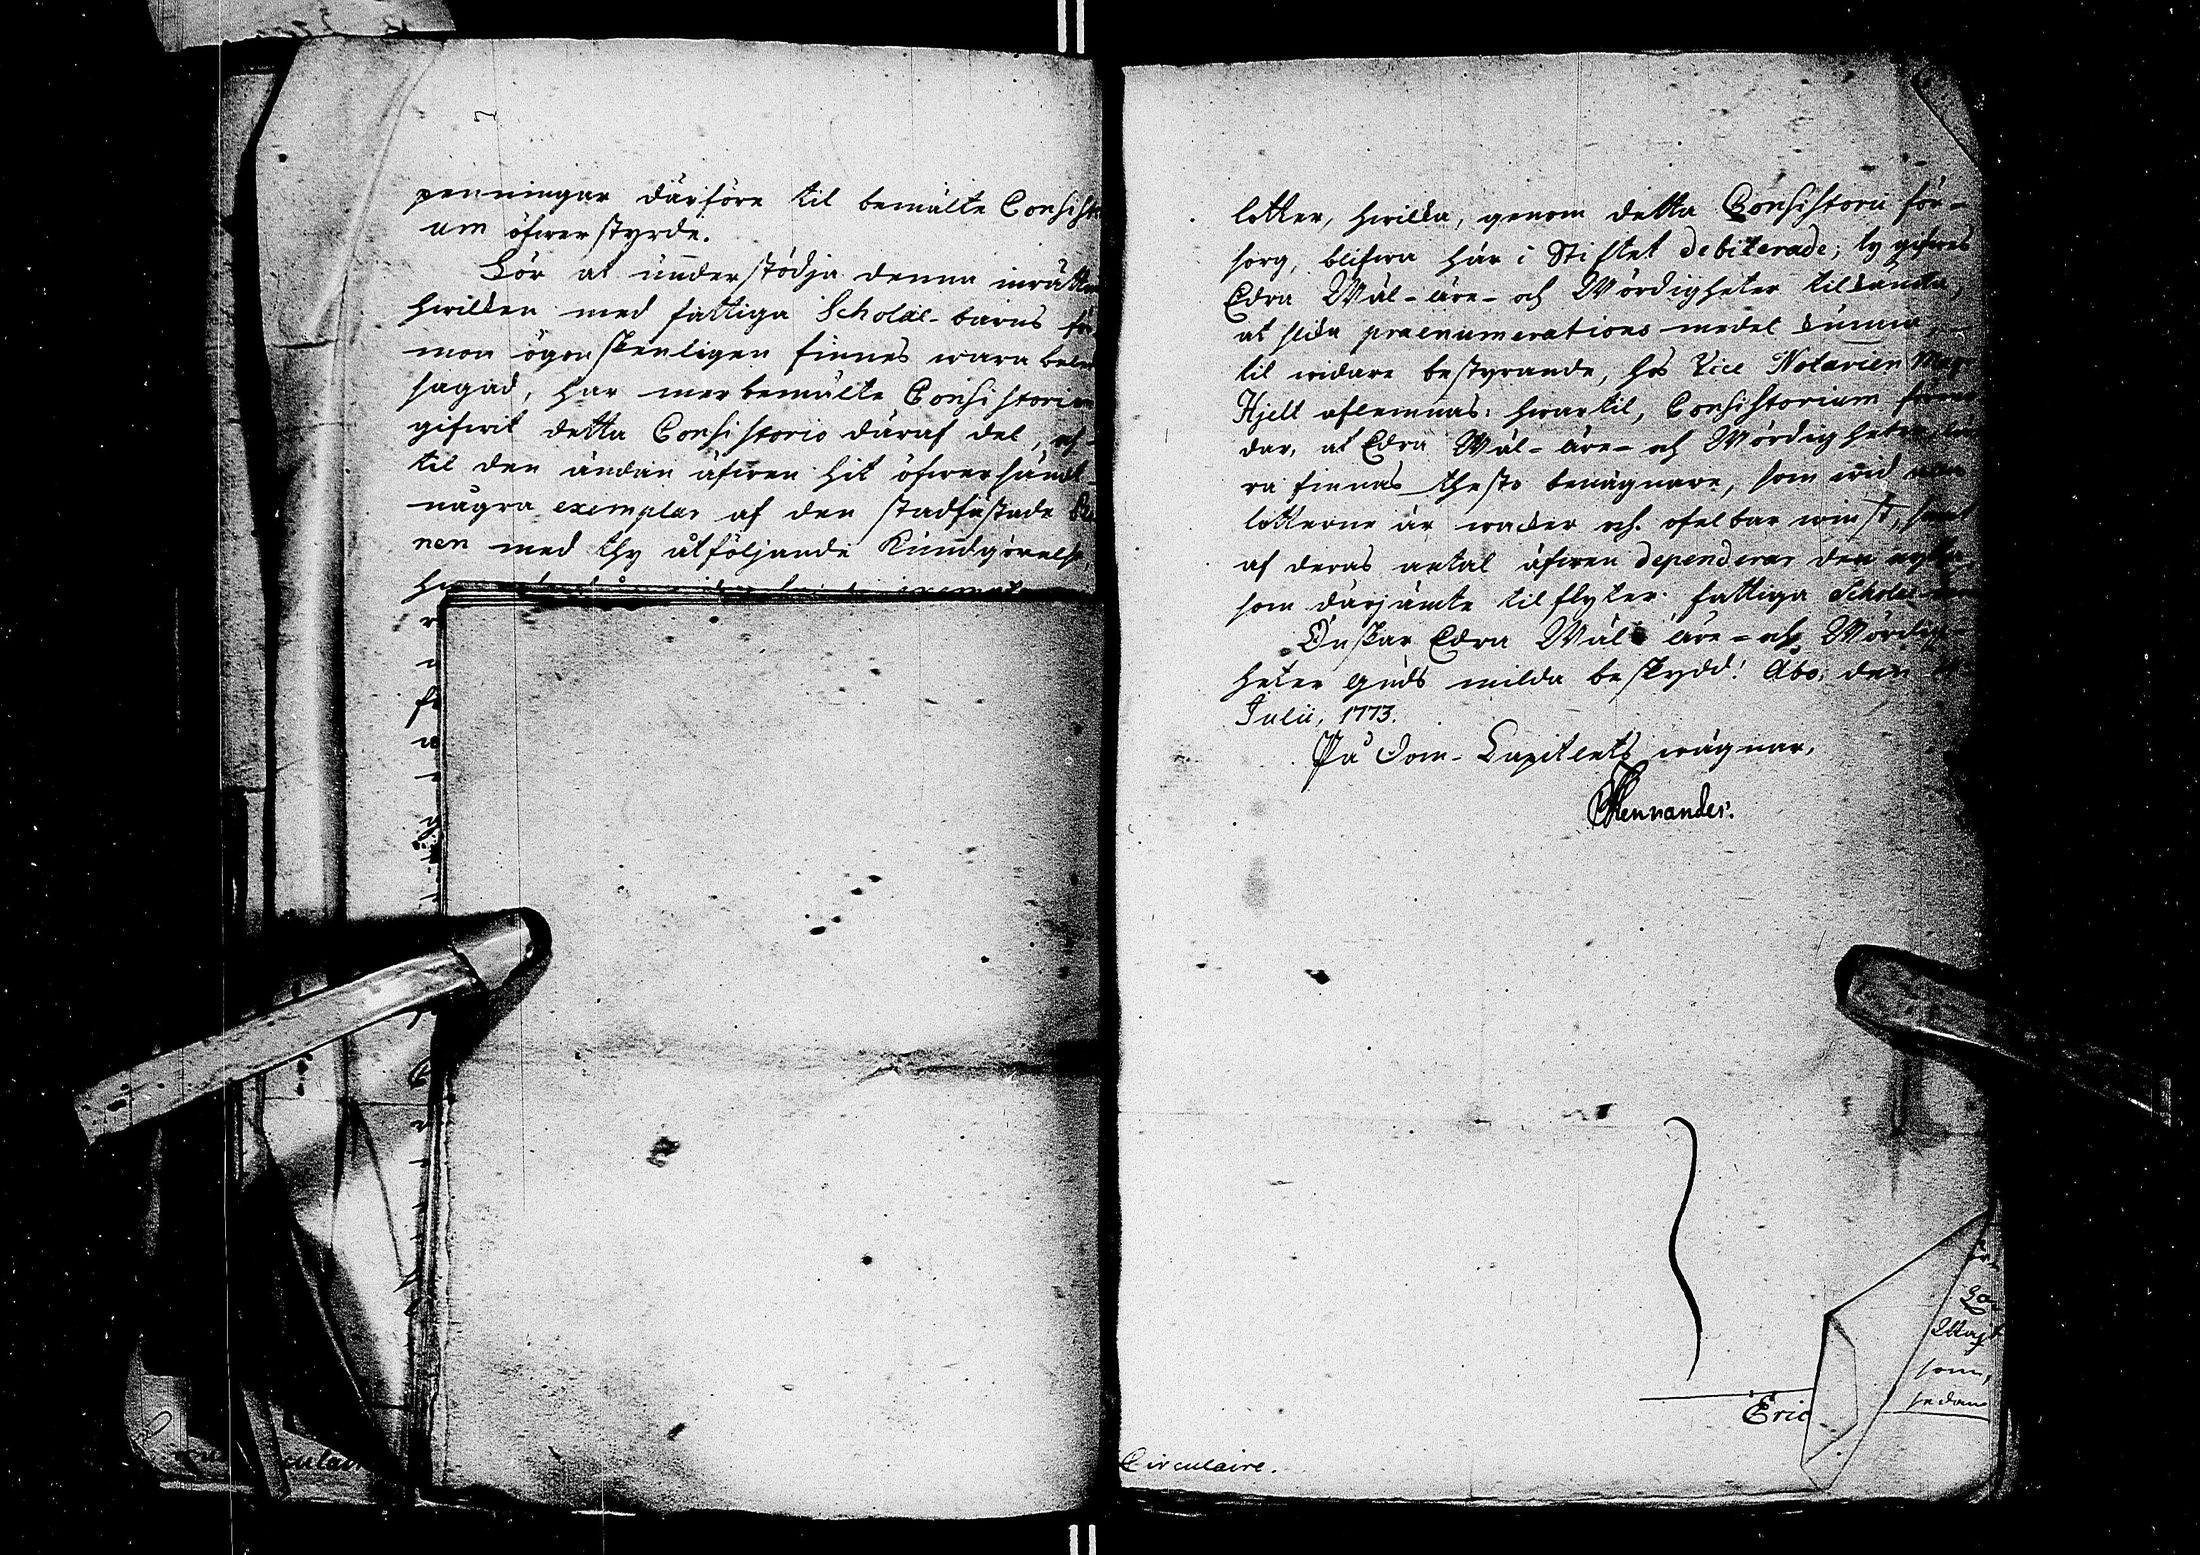 penningar därföre til bemälte Consisto
um öfwerstyrde.
För at understödja denna inrättn
hwilken med fattiga Scholæ-barns för
mon ögonskenligen finnes wara bele
sagad, har merbemälte Consistorium
gifwit detta Consistorio däraf del, och
til den ändan äfwen hit öfwersändt
några exemplar af den stadfästade
nen med thy åtföljande Kundgörelse,
lotter, hwilka, genom detta Consistorii för-
sorg, blifwa här i Stiftet debiterade; ty gifwes
Edra Wäl-äre- och Wördigheter tilkänna,
at slika prænumerations-medel kunna,
til widare bestyrande, hos Vice Notarien Mag.
Hjelt aflemnas: hwartil, Consistorium förmo
dar, at Edra Wäl-äre- och Wördigheter
ra finnas thesto benägnare, som wid
lotterne är wacker och ofelbar winst, samt
af deras antal äfwen dependerar den nytta,
som därjämte tilflyter fattiga Scholæ-
Önskar Edra Wäl-äre- och Wördig-
heter Guds milda beskydd! Åbo, den
Julii, 1773.
På Dom-Capitlets wägnar,
Mennander.
Eric
Circulaire.
som,
sedan